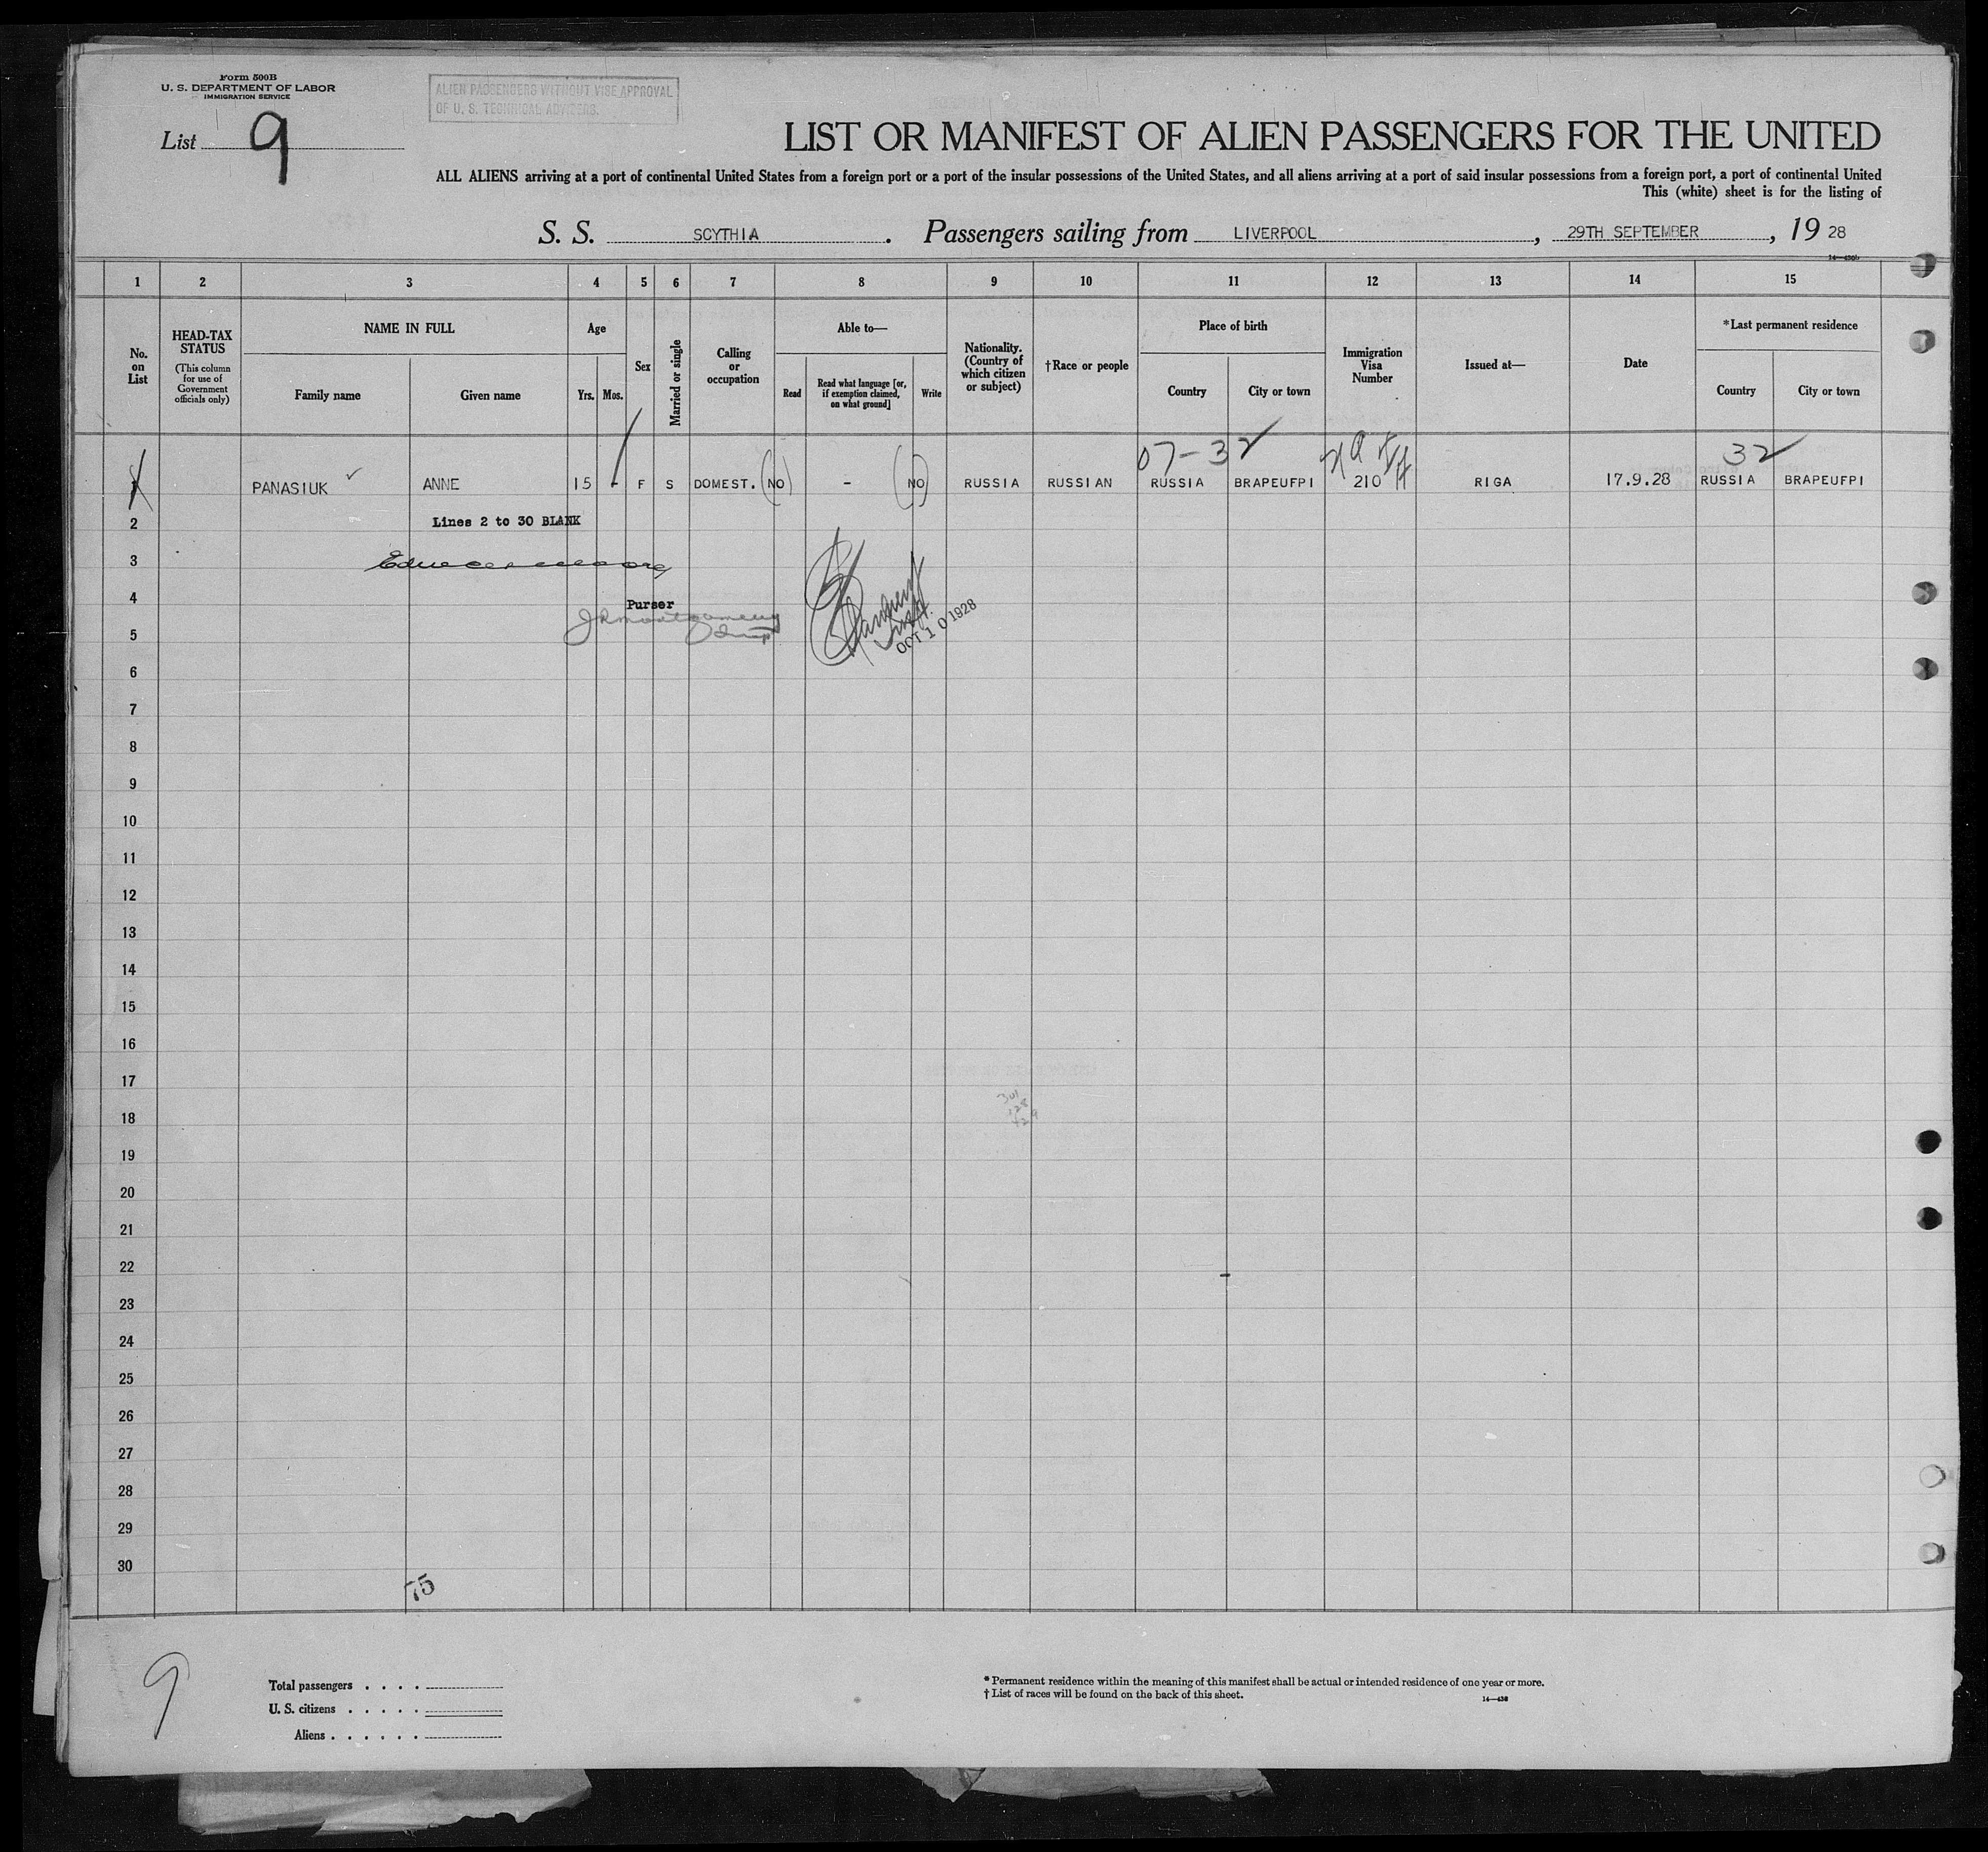 Form 500B
U. S. DEPARTMENT OF LABOR
IMMIGRATION SERVICE
ALIEN PASSENGERS WITHOUT VISE APPROVAL
OF U. S. TECHNICAL ADVISERS.
List 9
LIST OR MANIFEST OF ALIEN PASSENGERS FOR THE UNITED
ALL ALIENS arriving at a port of continental United States from a foreign port or a port of the insular possessions of the United States, and all aliens arriving at a port of said insular possessions from a foreign port, a port of continental United
This (white) sheet is for the listing of
S. S. SCYTHIA. Passengers sailing from LIVERPOOL, 29TH SEPTEMBER, 19 28
1 2 3 4 5 6 7 8 9 10 11 12 13 14 15
No. on List
HEAD-TAX STATUS
(This column for use of Government officials only)
NAME IN FULL
Family name Given name
Age
Yrs. Mos.
Sex
Married or single
Calling or occupation
Able to—
Read
Read what language [or, if exemption claimed, on what ground]
Write
Nationality. (Country of which citizen or subject)
†Race or people
Place of birth
Country City or town
Immigration Visa Number
Issued at—
Date
*Last permanent residence
Country City or town
07-32 32
1 PANASIUK ANNE 15 - F S DOMEST. NO - NO RUSSIA RUSSIAN RUSSIA BRAPEUFPI 210 RIGA 17.9.28 RUSSIA BRAPEUFPI
2 Lines 2 to 30 BLANK
3
4 Purser
JR Montgomery
5 OCT 10 1928
6
7
8
9
10
11
12
13
14
15
16
17
18
19
20
21
22
23
24
25
26
27
28
29
30
75
9
Total passengers . . . .
U. S. citizens . . . . .
Aliens . . . . . .
* Permanent residence within the meaning of this manifest shall be actual or intended residence of one year or more.
† List of races will be found on the back of this sheet.